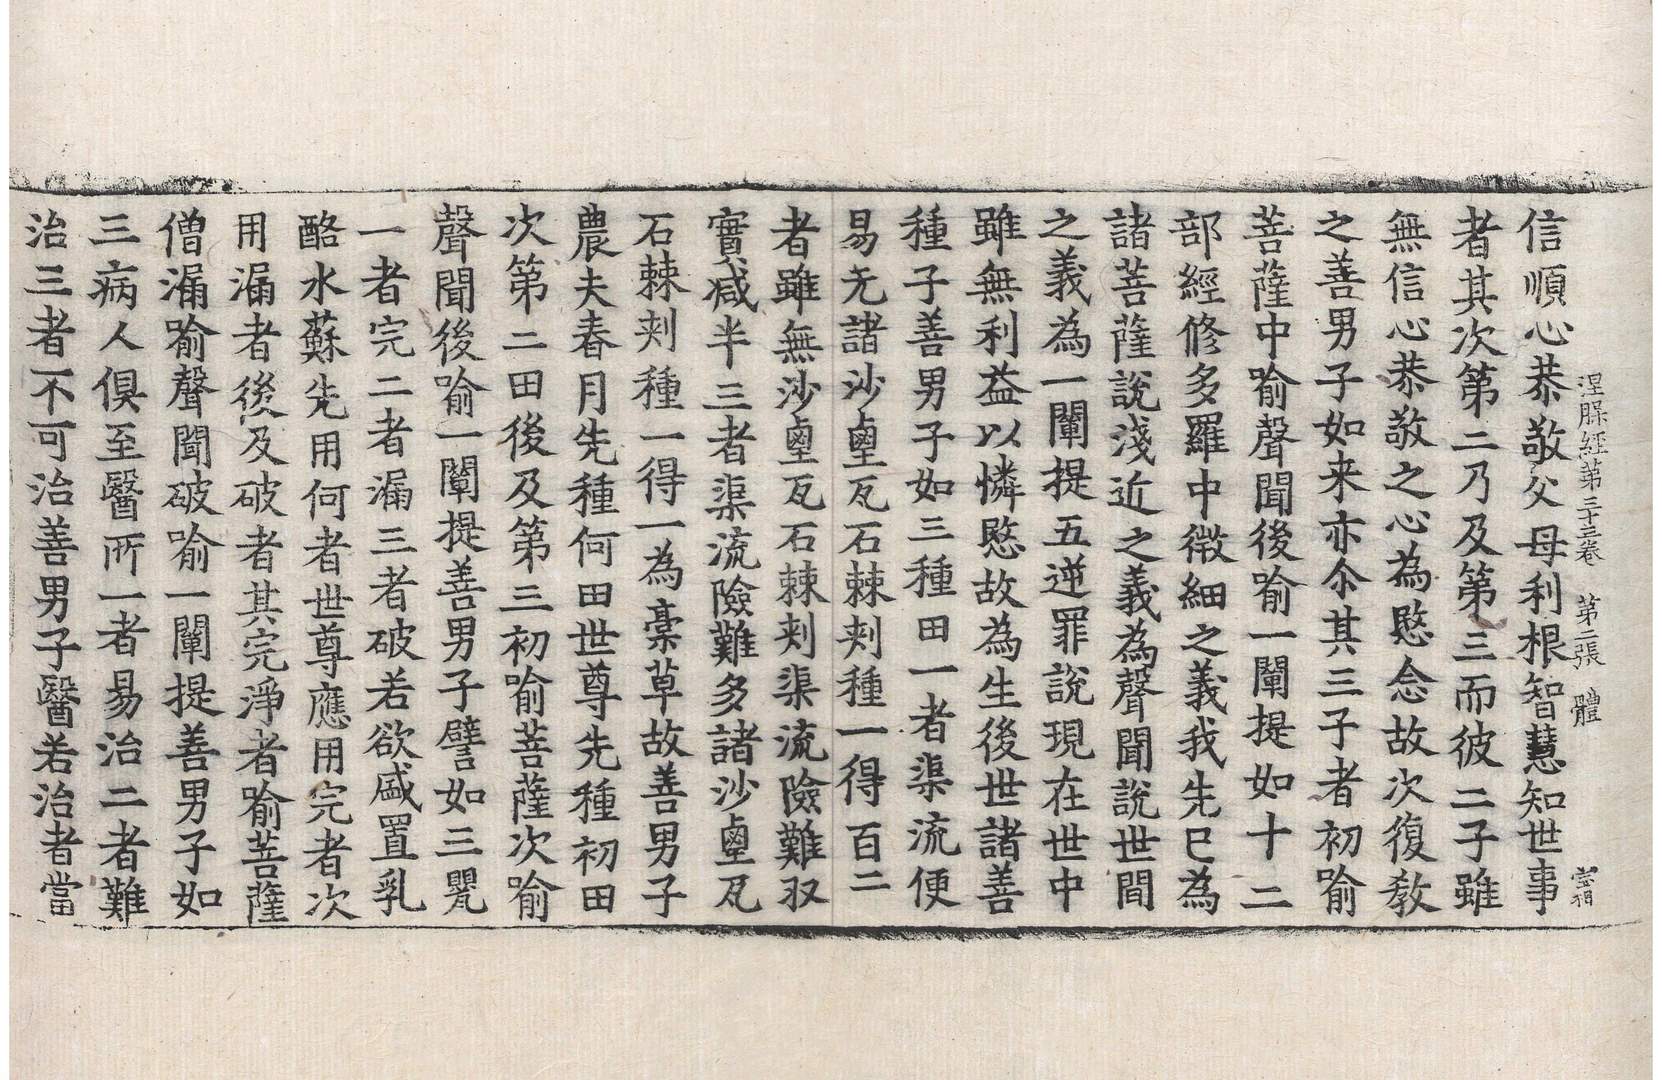 涅脵經第三十三卷 第二張 體
信順心恭敬父母利根智慧知世事
者其次第二乃及第三而彼二子雖
無信心恭敬之心為愍念故次復教
之善男子如来亦尒其三子者初喻
菩薩中喻聲聞後喻一闡提如十二
部經修多羅中微細之義我先已為
諸菩薩說淺近之義為聲聞說世間
之義為一闡提五逆罪說現在世中
雖無利益以憐愍故為生後世諸善
種子善男子如三種田一者渠流便
易无諸沙鹵瓦石棘刺種一得百二
者雖無沙鹵瓦石棘刺渠流險難収
實減半三者渠流險難多諸沙鹵瓦
石棘刺種一得一為稾草故善男子
農夫春月先種何田世尊先種初田
次第二田後及第三初喻菩薩次喻
聲聞後喻一闡提善男子譬如三甖
一者完二者漏三者破若欲盛置乳
酪水蘇先用何者世尊應用完者次
用漏者後及破者其完淨者喻菩薩
僧漏喻聲聞破喻一闡提善男子如
三病人俱至醫所一者易治二者難
治三者不可治善男子醫若治者當